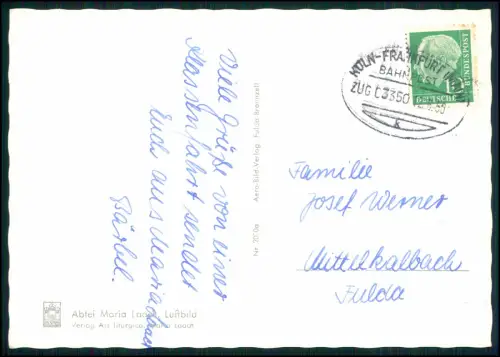 Viele Grüße von einer
Klassenfahrt sendet
Euch aus Mariahaus
Bärbel.
Abtei Maria Laach, Luftbild
Verlag Ars liturgica, Maria Laach
Nr. 3210a
Aero-Bild-Verlag, Fulda
KÖLN-FRANKFURT
BAHNPOST
ZUG 3350
DEUTSCHE
BUNDESPOST
Familie
Josef Werner
Mittelkalbach
Fulda